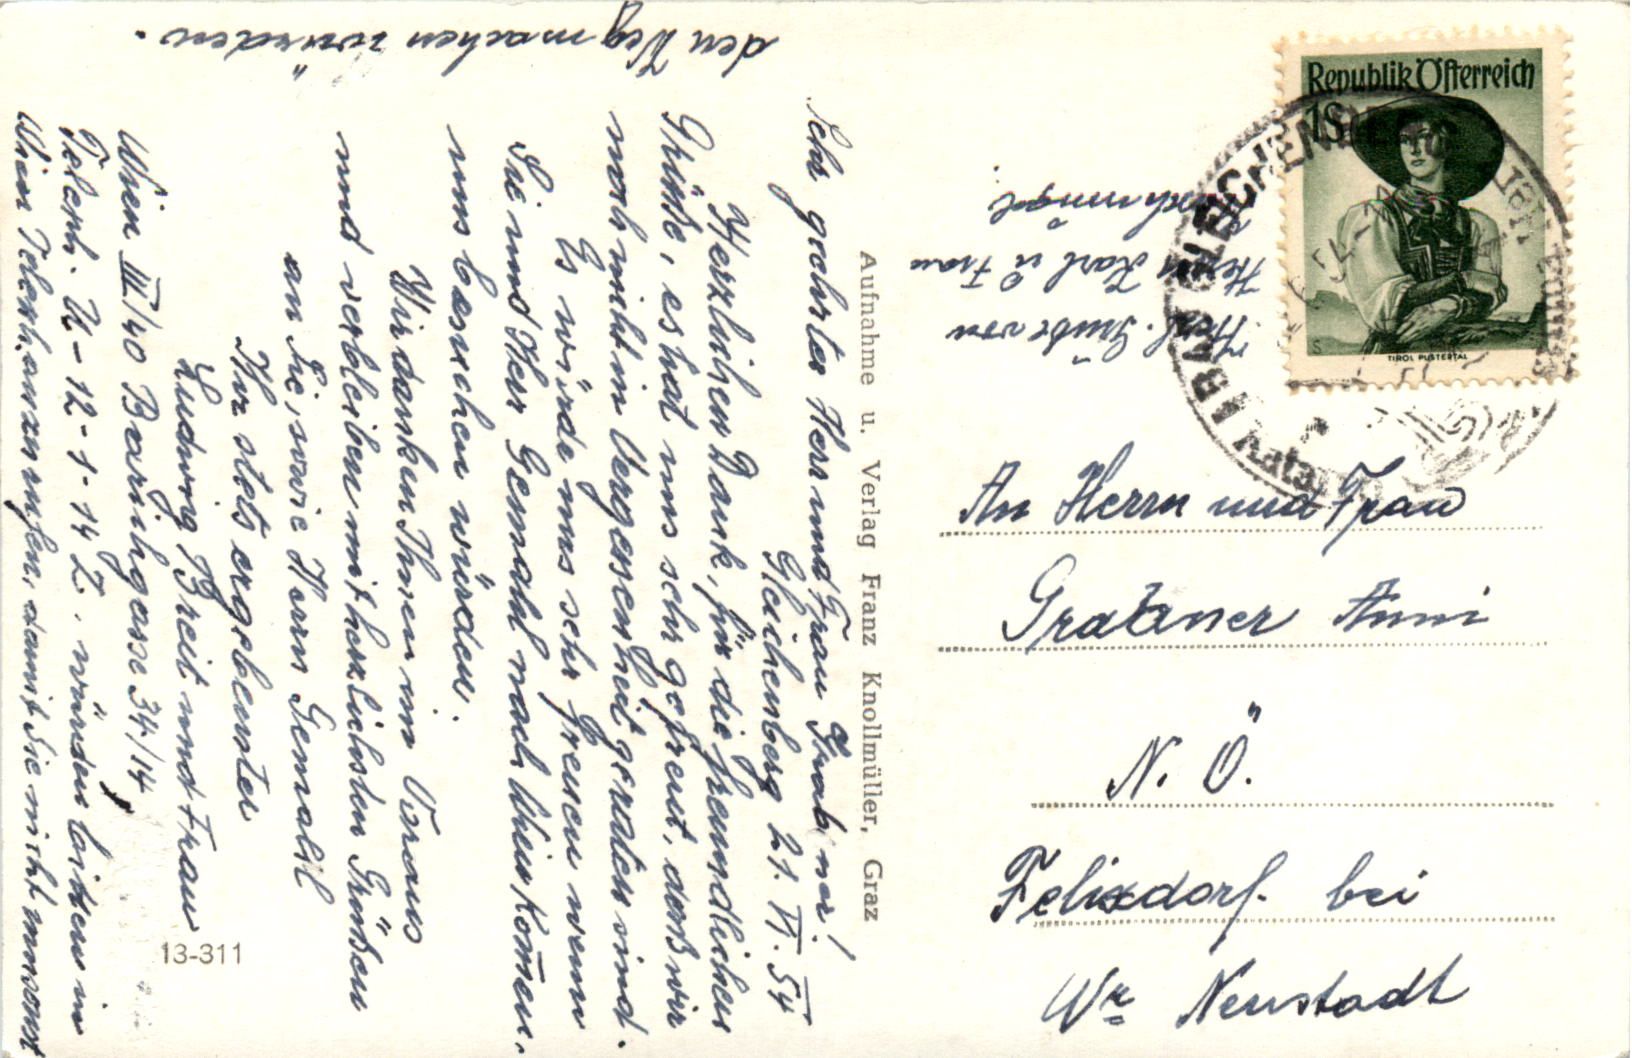 Gleichenberg 21. VI. 54
Sehr geehrter Herr und Frau Grabner!
Herzlichen Dank, für die freundlichen
Grüße, es hat uns sehr gefreut, daß wir
noch nicht in Vergessenheit geraten sind.
Es würde uns sehr freuen wenn
Sie und Herr Gemahl nach Wien kom̄en,
uns besuchen würden.
Wir danken Ihnen im Voraus
und verbleiben mit herzlichsten Grüßen
an Sie, sowie Herrn Gemahl
Ihr stets ergebenster
Ludwig Breit und Frau
Wien III/40 Barichgasse 34/14
Teleph. U-12-1-14 Z. würden bitten in
Wien Teleph. anzurufen, damit Sie nicht umsonst
den Weg machen würden.
Aufnahme u. Verlag Franz Knollmüller, Graz
13-311
Herzl. Grüße von
Herrn Karl u Frau
Republik Österreich
1S
TIROL PUSTERTAL
BAD GLEICHENBERG
An Herrn und Frau
Grabner Anni
N. Ö.
Felixdorf. bei
Wr Neustadt